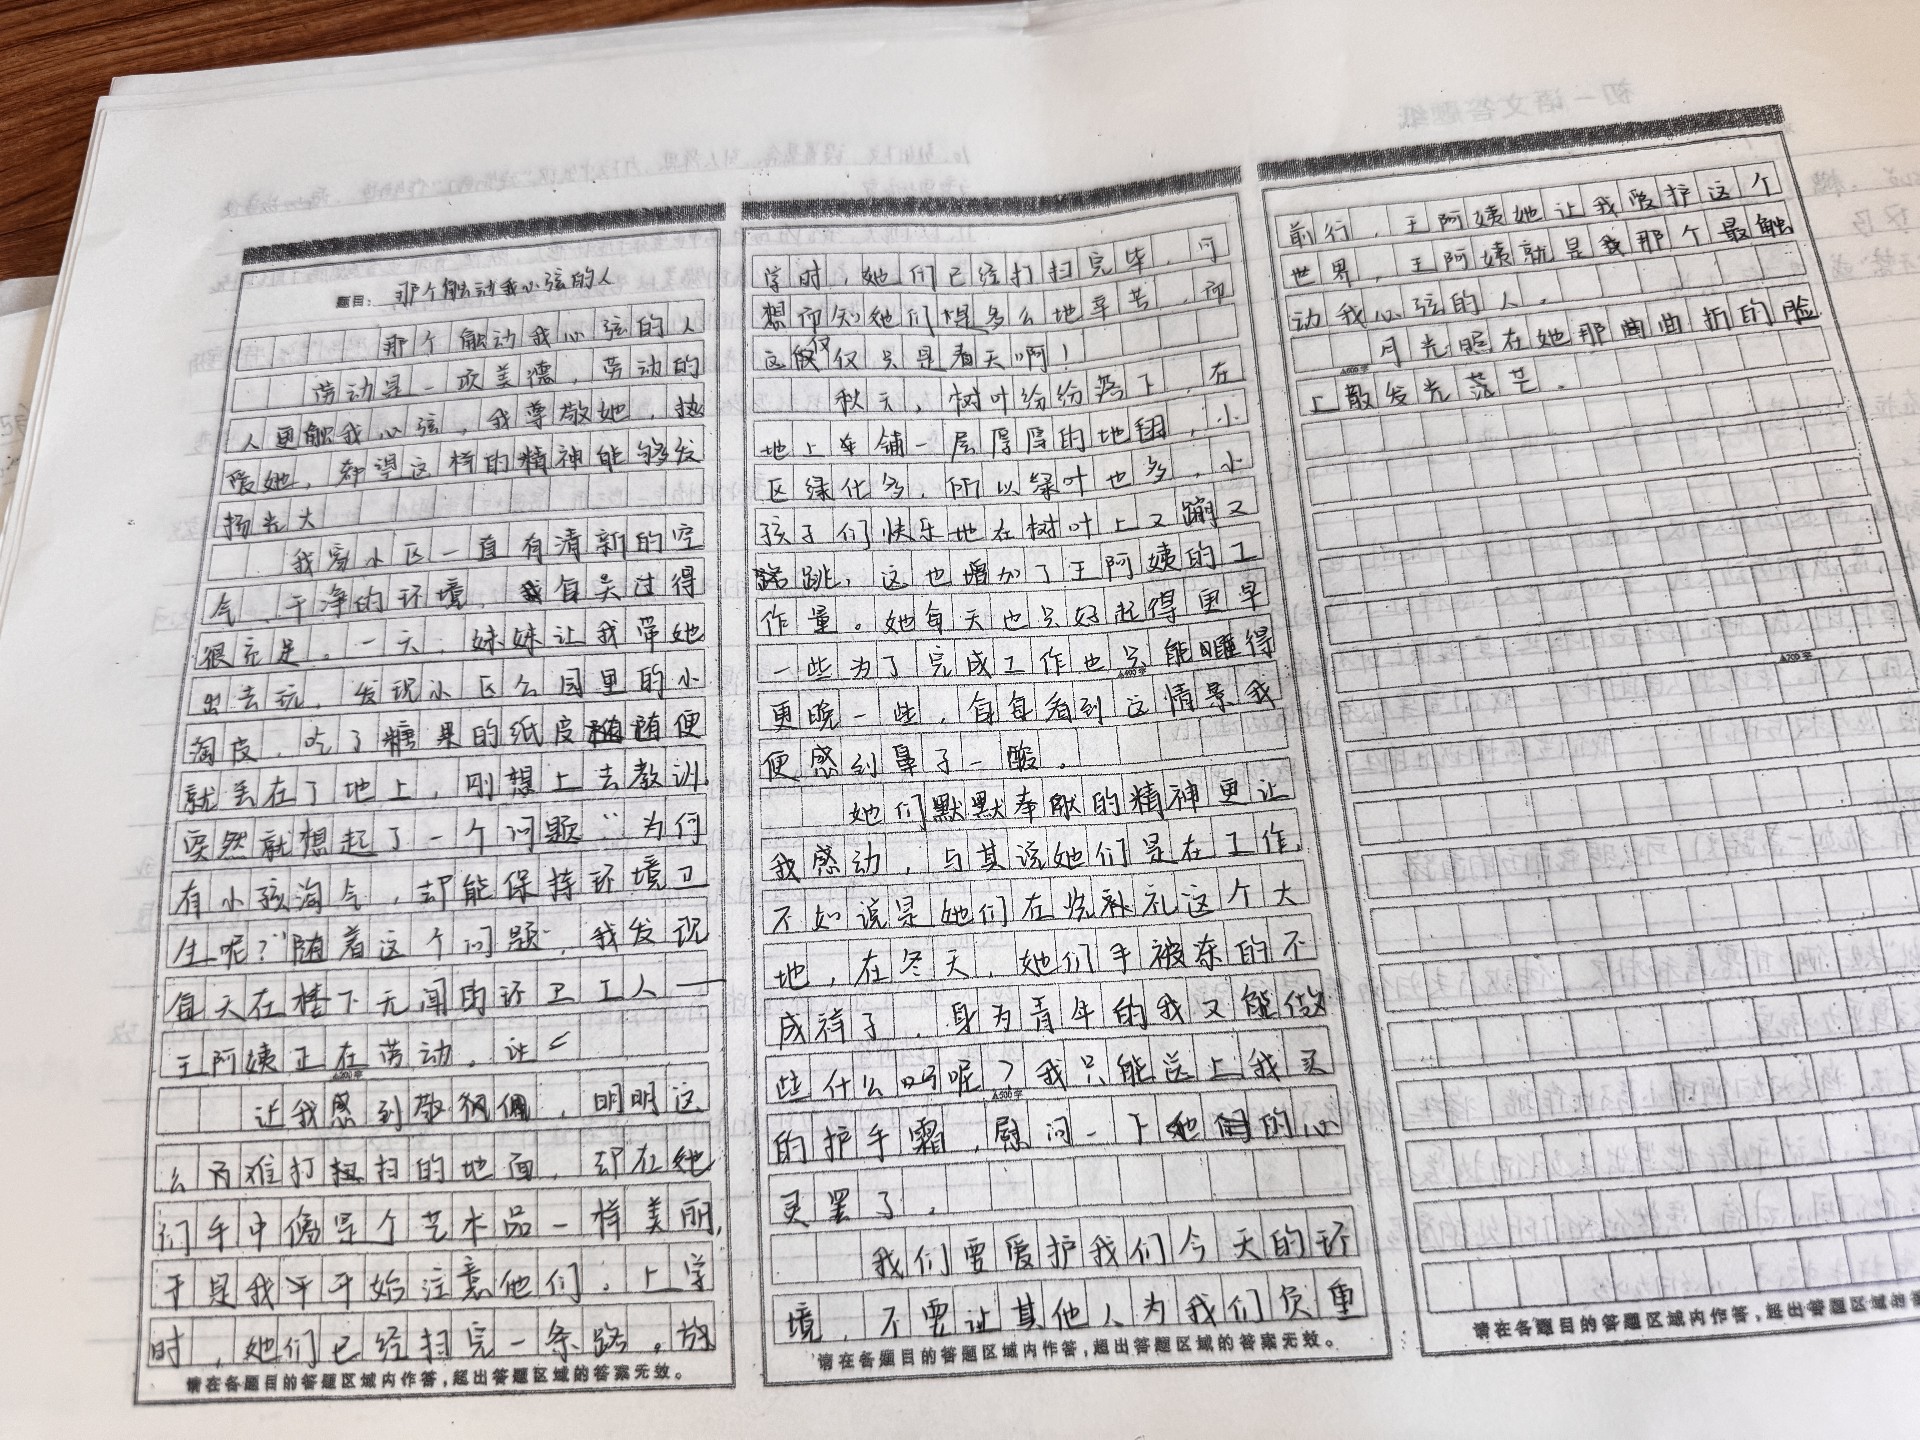 题目：那个触动我心弦的人
那个触动我心弦的人
劳动是一项美德，劳动的
人更触我心弦，我尊敬她，热
爱她，希望这样的精神能够发
扬光大
我家小区一直有清新的空
气、干净的环境，我每天过得
很充足。一天，妹妹让我带她
出去玩，发现小区公园里的小
淘皮，吃了糖果的纸皮随随便
就丢在了地上，刚想上去教训，
突然就想起了一个问题：“为何
有小孩淘气，却能保持环境卫
生呢？”随着这个问题，我发现
每天在楼下无闻的环卫工人——
王阿姨正在劳动。让
△300字
让我感到敬佩，明明这
么难打扫的地面，却在她
们手中像是个艺术品一样美丽，
于是我开始注意他们，上学
时，她们已经扫完一条路。放
请在各题目的答题区域内作答，超出答题区域的答案无效。
学时，她们已经打扫完毕，可
想而知她们是多么地辛苦，而
这仅仅只是春天啊！
秋天，树叶纷纷落下，在
地上铺一层厚厚的地毯，小
区绿化多，所以绿叶也多，小
孩子们快乐地在树叶上又蹦又
跳，这也增加了王阿姨的工
作量。她每天也只好起得更早
一些为了完成工作也只能睡得
△400字
更晚一些，每每看到这情景我
便感到鼻子一酸。
她们默默奉献的精神更让
我感动，与其说她们是在工作，
不如说是她们在洗礼这个大
地，在冬天，她们手被冻的不
成样子，身为青年的我又能做
些什么呢？我只能送上我买
△500字
的护手霜，慰问一下她们的心
灵罢了。
我们要爱护我们今天的环
境，不要让其他人为我们负重
请在各题目的答题区域内作答，超出答题区域的答案无效。
前行，王阿姨她让我爱护这个
世界，王阿姨就是我那个最触
动我心弦的人。
月光照在她那曲曲折的脸
△600字
上散发光芒。
请在各题目的答题区域内作答，超出答题区域的答